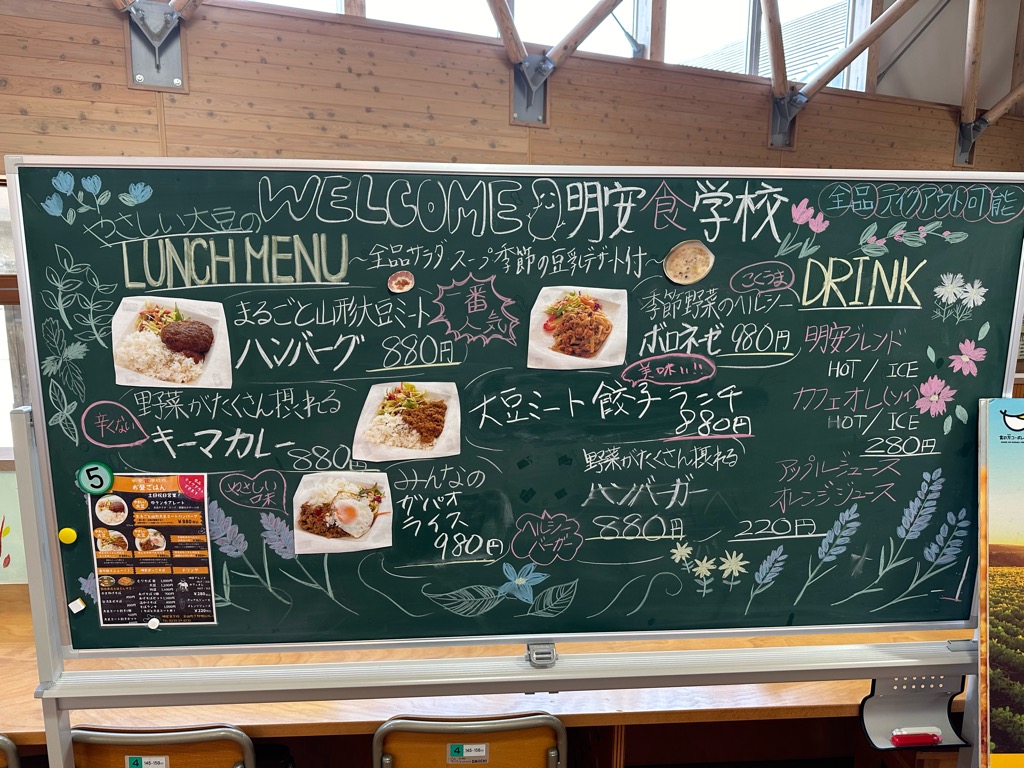 WELCOME 明安食学校
全品テイクアウト可能
やさしい大豆の
LUNCH MENU
~全品サラダ スープ季節の豆乳デザート付~
まるごと山形大豆ミート
ハンバーグ 880円
一番
人気
こくうま
季節野菜のヘルシー
ボロネーゼ 980円
野菜がたくさん摂れる
辛くない
キーマカレー
880円
美味い!!
大豆ミート餃子ランチ
880円
やさしい
味
みんなの
ガパオ
ライス
980円
野菜がたくさん摂れる
ハンバーガー
880円
ヘルシー
バーガー
DRINK
明安ブレンド
HOT / ICE
カフェオレ(ソイ)
HOT / ICE
280円
アップルジュース
オレンジジュース
220円
5
お昼ごはん
4
145-158
4
145-158